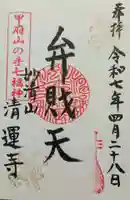 奉拝
令和七年四月二十八日
甲府山の手七福神
弁財天
妙清山
清運寺